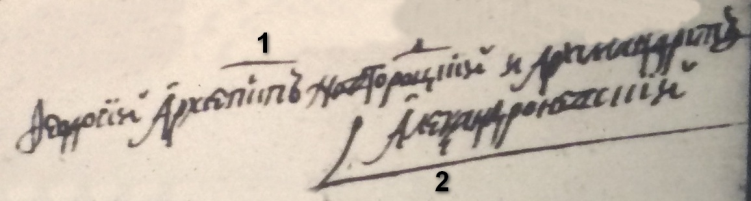 1
Ѳеодосій Архіепⷭ҇іпъ Новгороцкій и Архимандритъ
Александроневскій
2